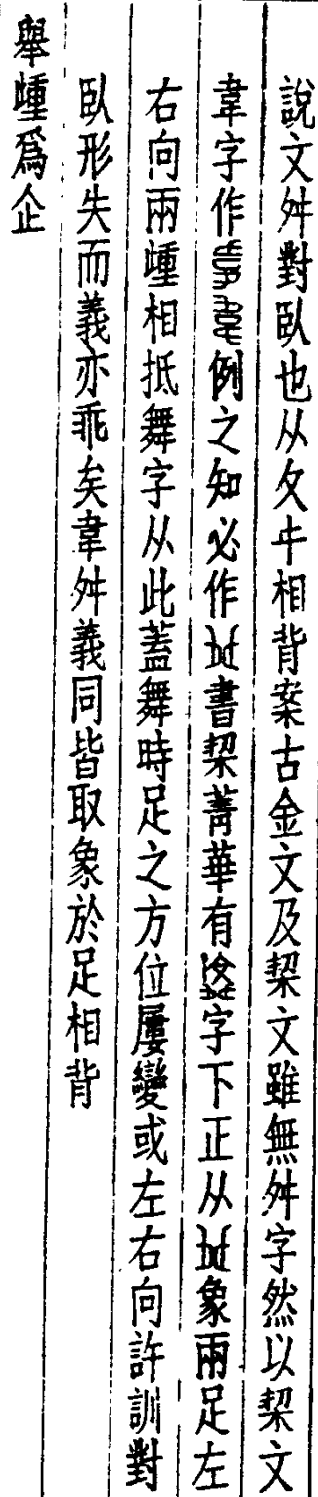 說文舛對臥也从夊㐄相背案古金文及栔文雖無舛字然以栔文
韋字作例之知必作書栔菁華有字下正从象兩足左
右向兩歱相抵舞字从此蓋舞時足之方位屢變或左右向許訓對
臥形失而義亦乖矣韋舛義同皆取象於足相背
舉歱爲企